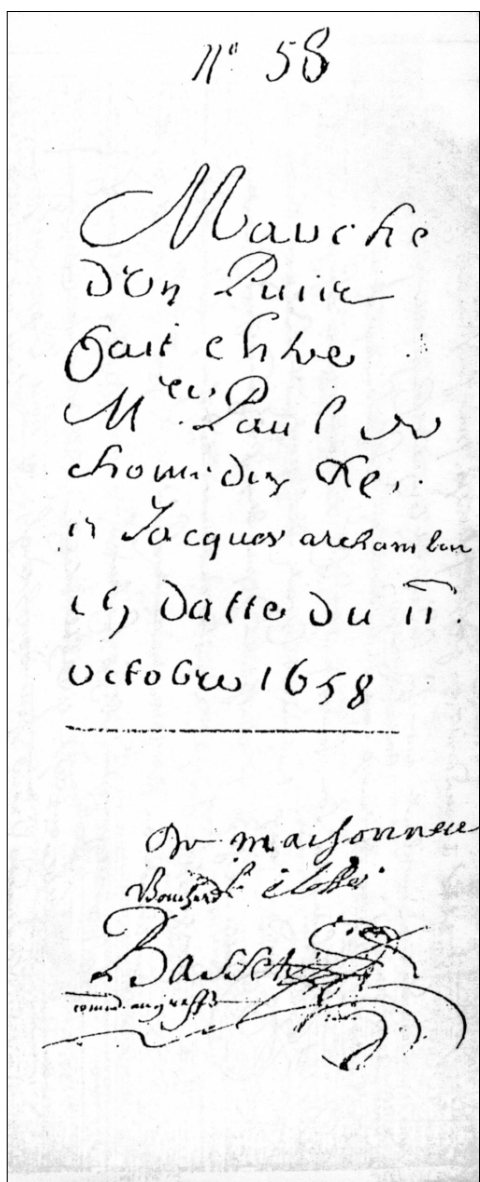 n° 58
Marche
d'un Puits
fait entre
M re Paul de
chomedey &c
et Jacques archambau
en datte du 11
octobre 1658
De maisonneuve
Bouchard
Basset
commis au greffe